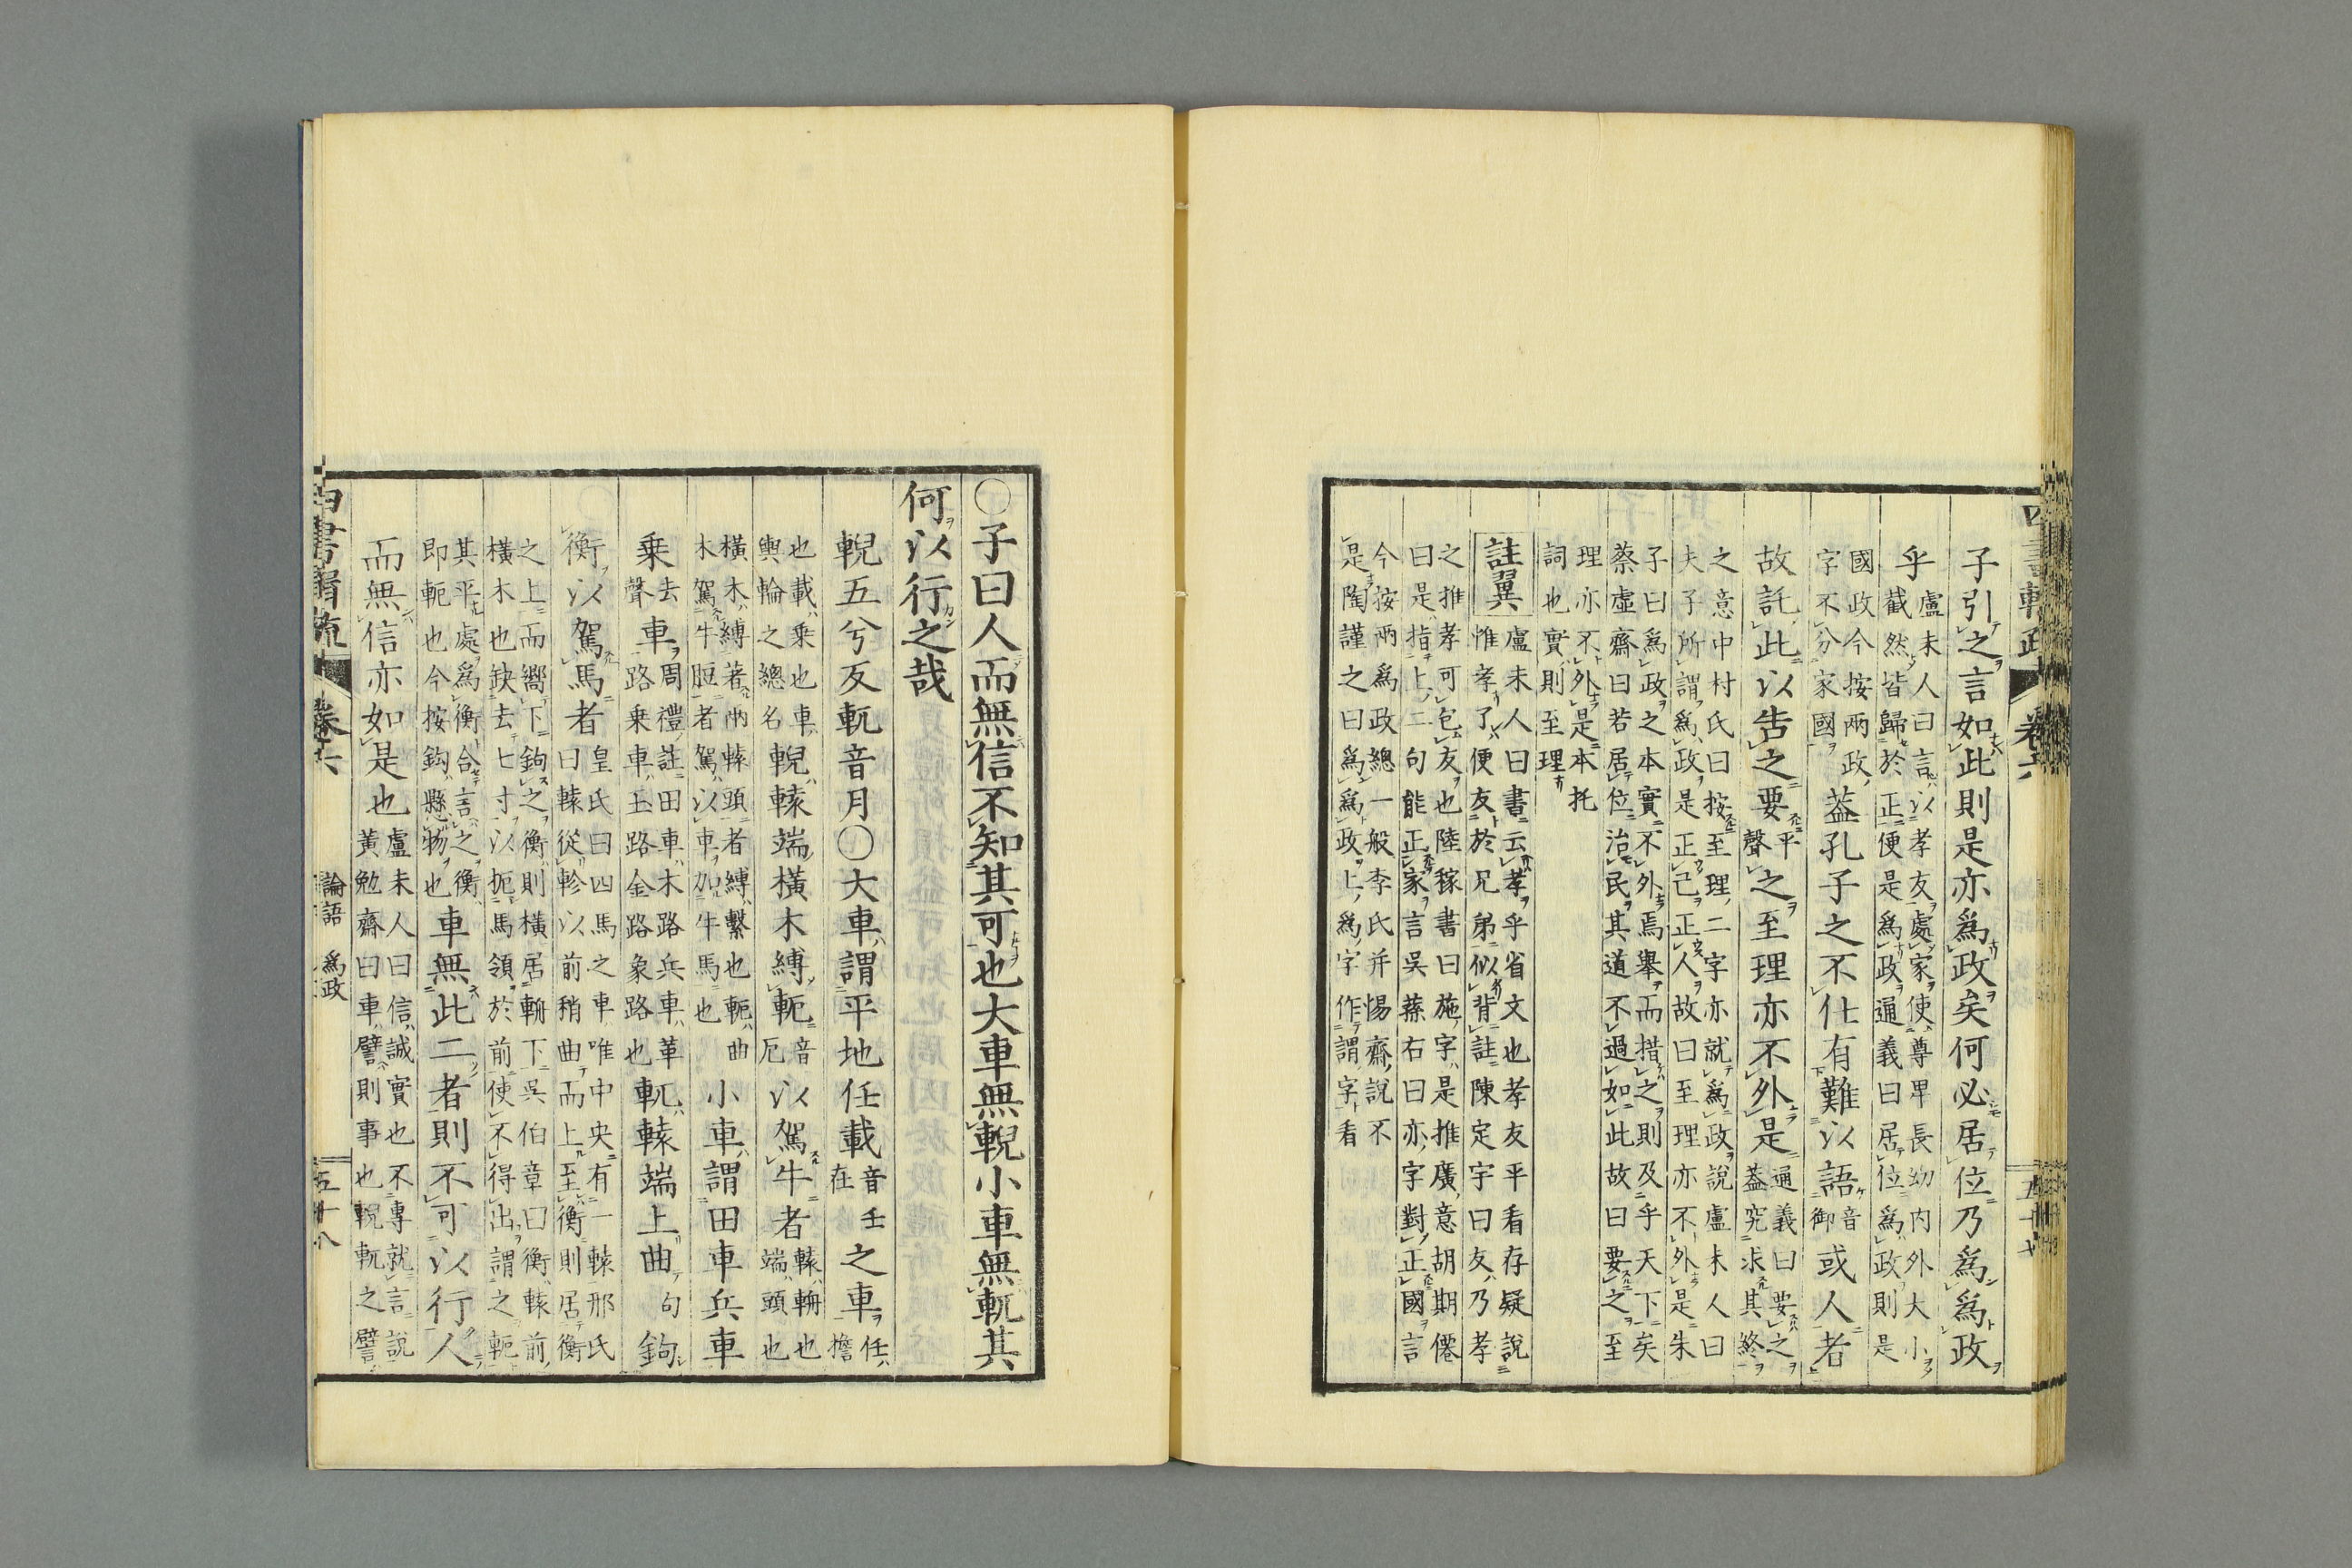 子引之言如此則是亦爲政矣何必居位乃爲爲政
乎盧未人曰言以孝友處家使尊卑長幼内外大小
截然皆歸於正便是爲政通義曰居位爲政則是
國政今按兩政
字不分家國蓋孔子之不仕有難以語音御或人者
故託此以告之要平聲之至理亦不外是通義曰要之
蓋究求其終
之意中村氏曰按至理二字亦就爲政說盧未人曰
夫子所謂爲政是正己正人故曰至理亦不外是朱
子曰爲政之本實不外焉舉而措之則及乎天下矣
蔡虛齋曰若居位治民其道不過如此故曰要之至
理亦不外是本托
詞也實則至理
註翼
盧未人曰書云孝乎省文也孝友平看存疑說
惟孝了便友於兄弟似背註陳定宇曰友乃孝
之推孝可包友也陸稼書曰施字是推廣意胡期僊
曰是指上二句能正家言吳蓀右曰亦字對正國言
今按兩爲政總一般李氏并惕齋說不
是陶謹之曰爲爲政上爲字作謂字看
卷六
五十七
〇子曰人而無信不知其可也大車無輗小車無軏其
何以行之哉
輗五兮反軏音月〇大車謂平地任載音壬
在之車任擔
也載乘也車
輿輪之總名輗轅端橫木縛軛音厄以駕牛者轅輈也
端頭也
橫木縛著兩轅頭者縛繫也軛曲
木駕牛脰者駕以車加牛馬也小車謂田車兵車
乘去聲車周禮註田車木路兵車革
路乘車玉路金路象路也軏轅端上曲句鉤
衡以駕馬者皇氏曰四馬之車唯中央有一轅邢氏
曰轅從軫以前稍曲而上至衡則居衡
之上而嚮下鉤之衡則橫居輈下吳伯章曰衡轅前
橫木也缺去七寸以扼馬領於前使不得出謂之軛
其平處爲衡合言之衡
即軛也今按鈎懸物也車無此二者則不可以行人
而無信亦如是也盧未人曰信誠實也不專就言說
黃勉齋曰車譬則事也輗軏之譬
卷六
論語 爲政
五十八